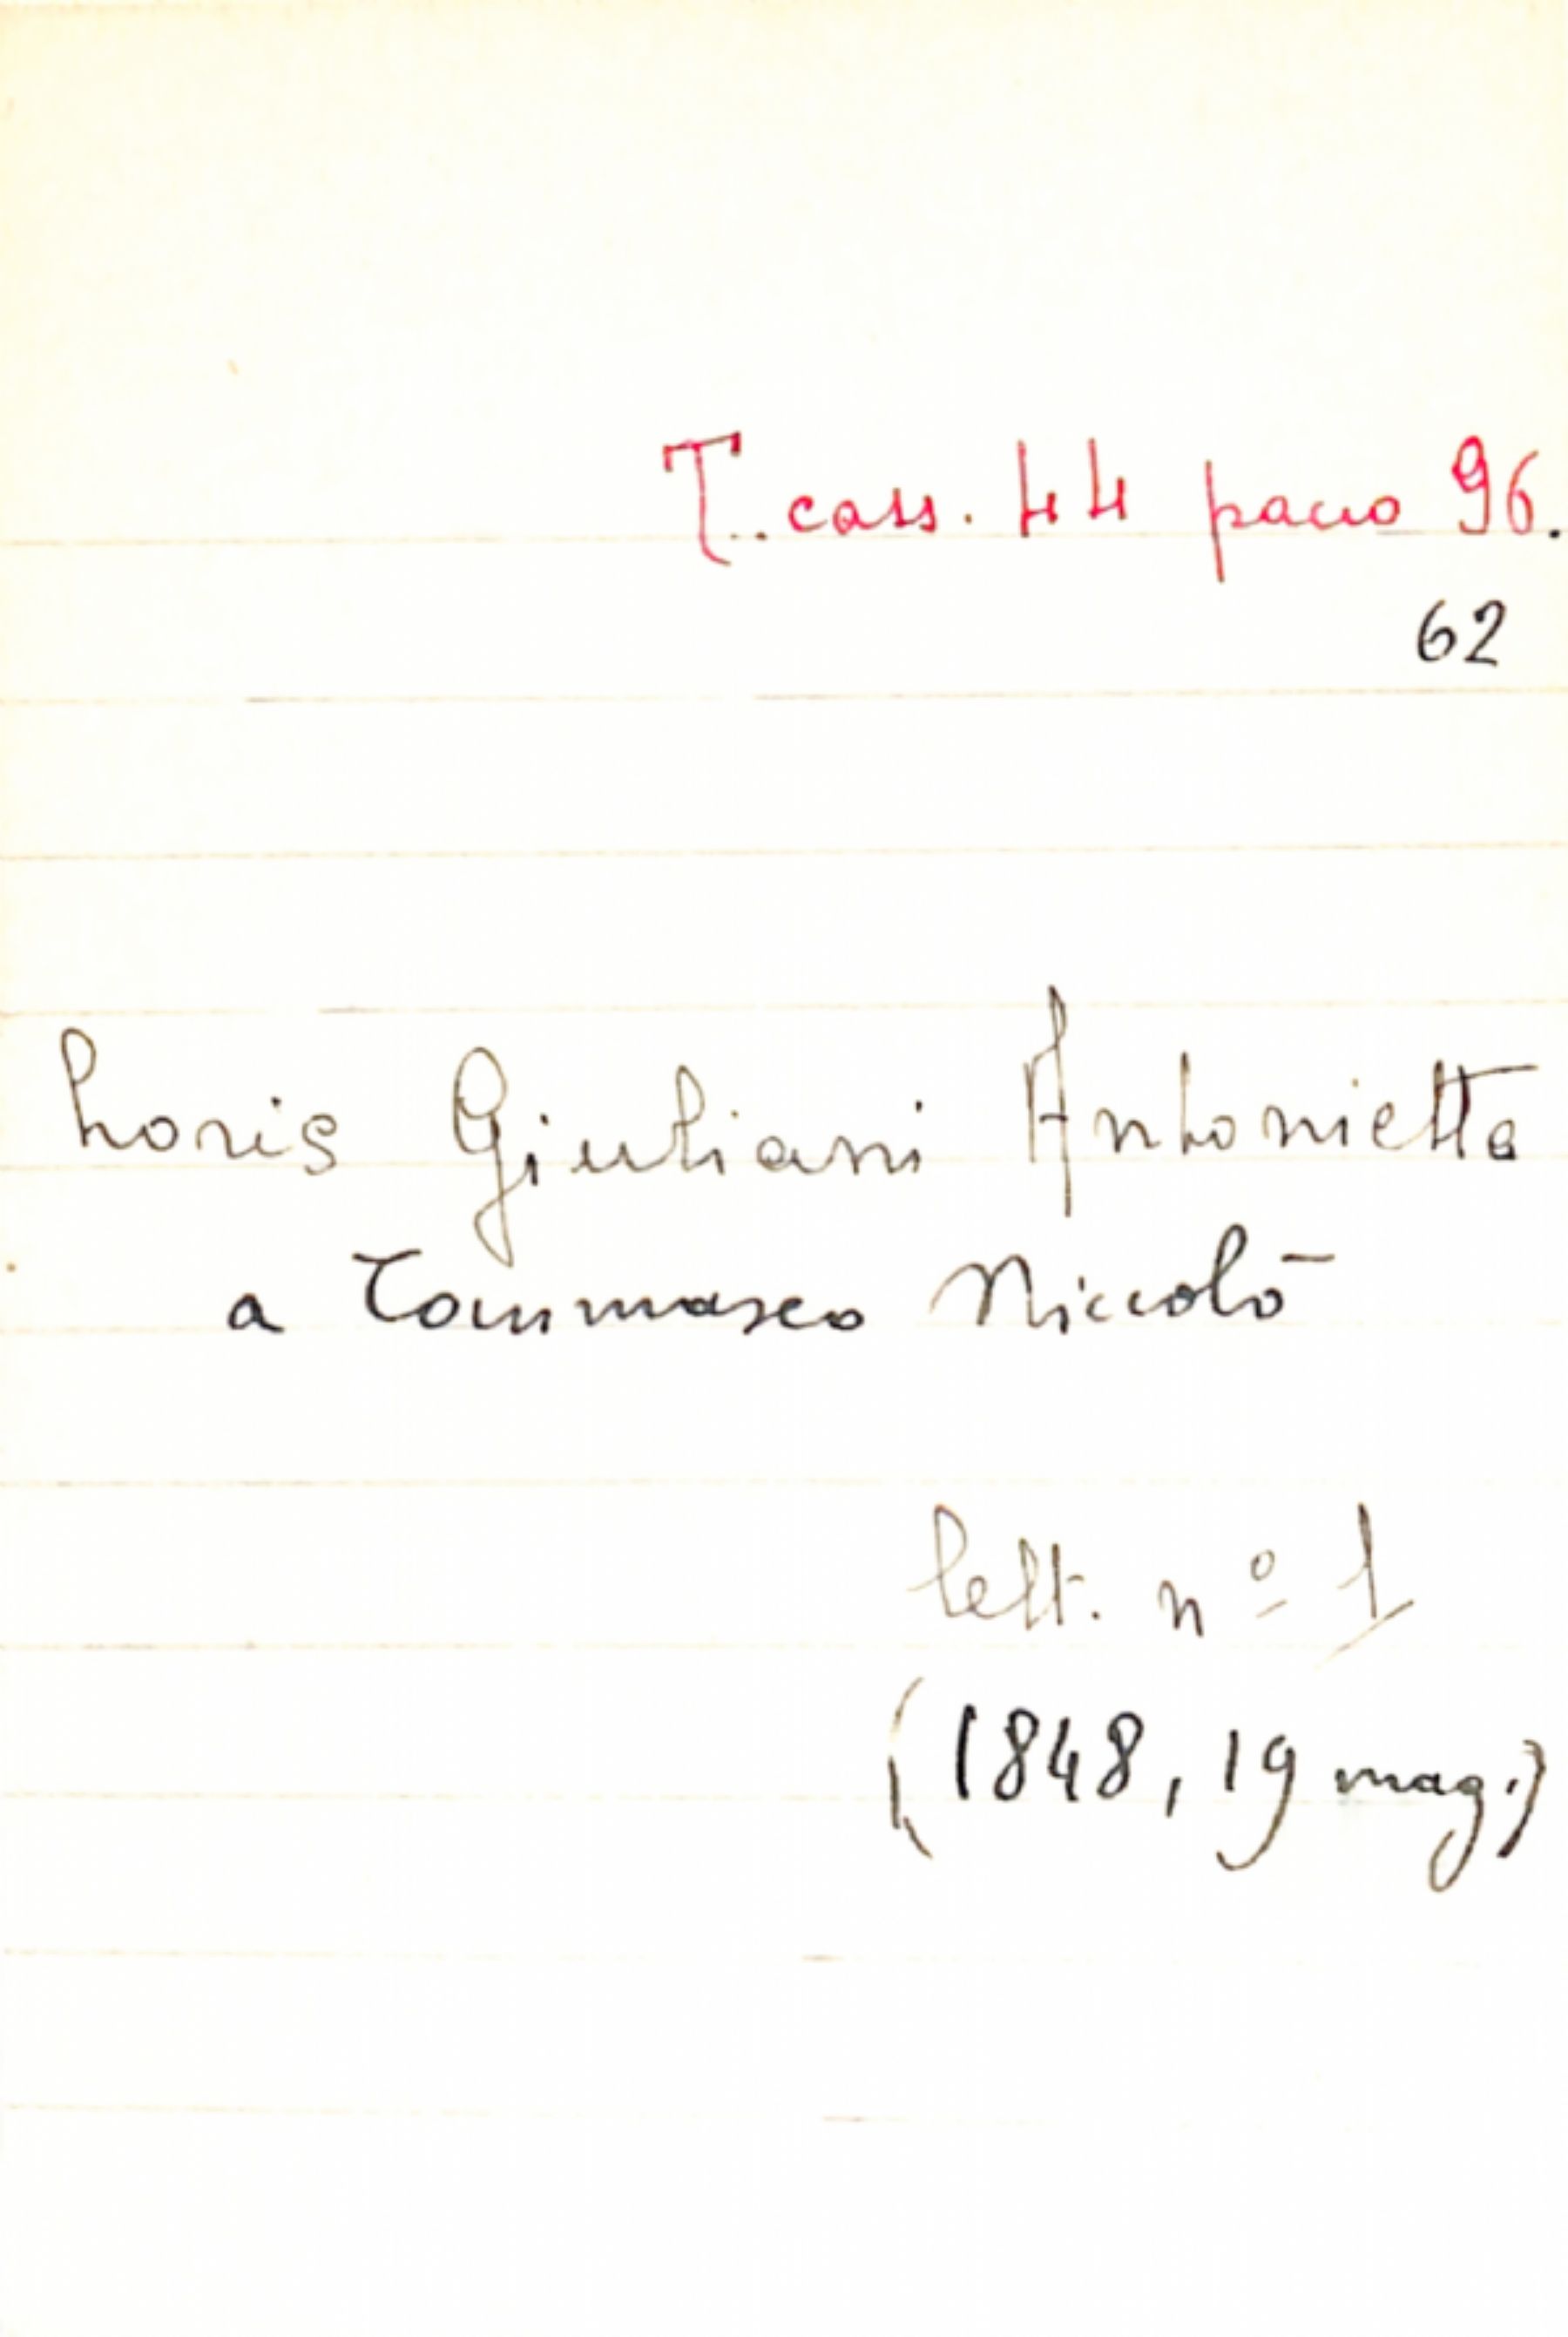 T. cass. 44 pacco 96.
62
Loris Giuliani Antonietta
a Tommaseo Niccolò
lett. nº 1
(1848, 19 mag.)